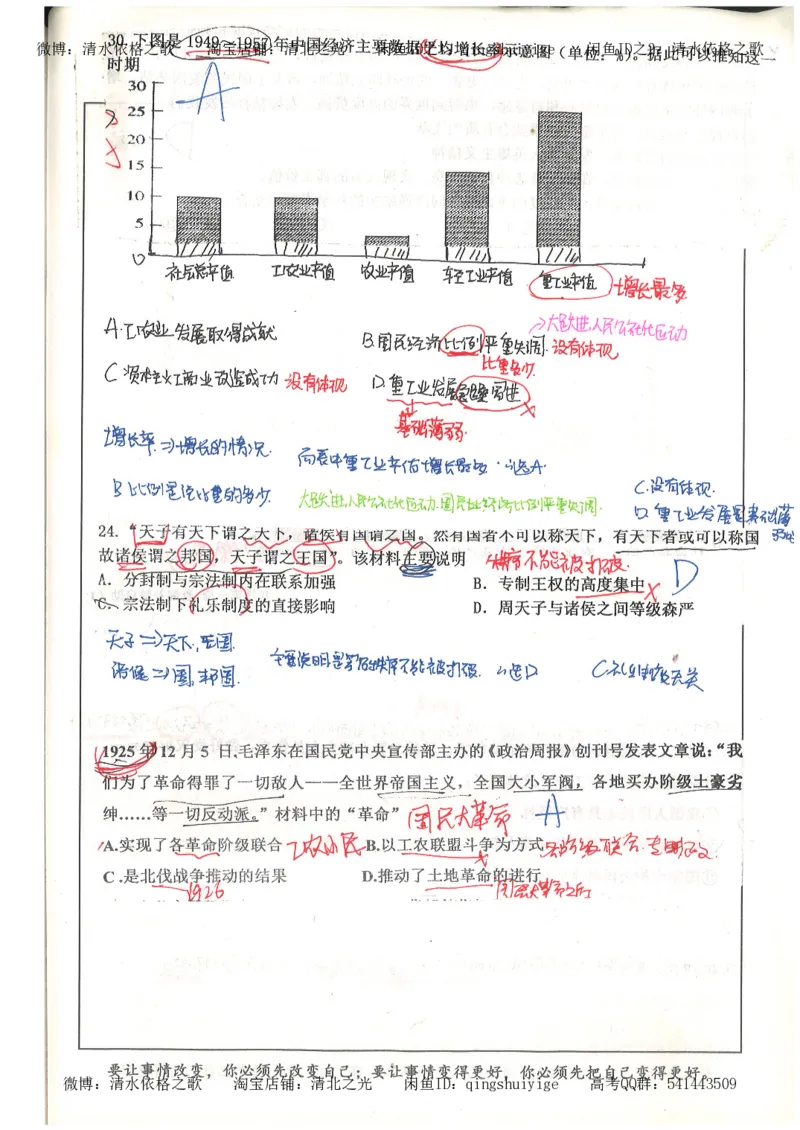 30. 下图是 1949—1957 年中国经济主要数据年均增长率示意图（单位：%）。据此可以推知这一
微博：清水依格之歌 淘宝店铺：清北之光 闲鱼ID之光 清水依格之歌
时期
A
30
25
20
15
10
5
0
社会总产值 工农业产值 农业产值 轻工业产值 重工业产值 增长最多
→大跃进,人民公社化运动
A.工农业发展取得成就 B.国民经济比例严重失调. 没有体现
比重多少.
C 资本主义工商业改造成功 没有体现 D.重工业发展急躁冒进
基础薄弱.
增长率⇒增长的情况. 而表中重工业产值增长最多∴选A.
B 比例是说比重的多少. 大跃进,人民公社化运动.国民经济比例严重失调. C.没有体现.
D.重工业发展因其基础薄弱
24. “天子有天下谓之天下，诸侯有国谓之国。然有国者不可以称天下，有天下者或可以称国
故诸侯谓之邦国，天子谓之王国”。该材料主要说明 秩序不能被打破.
A．分封制与宗法制内在联系加强 B．专制王权的高度集中 D
C．宗法制下礼乐制度的直接影响 D．周天子与诸侯之间等级森严
天子⇒天下,王国.
诸侯⇒国,邦国. 主要说明是等级秩序不能被打破. ∴选D C.礼乐制度无关
1925 年 12 月 5 日,毛泽东在国民党中央宣传部主办的《政治周报》创刊号发表文章说：“我
们为了革命得罪了一切敌人——全世界帝国主义，全国大小军阀，各地买办阶级土豪劣
绅……等一切反动派。”材料中的“革命” 国民大革命 A
A.实现了各革命阶级联合 工农小民 B.以工农联盟斗争为方式
C .是北伐战争推动的结果 D.推动了土地革命的进行
1926 国民大革命之后
要让事情改变，你必须先改变自己；要让事情变得更好，你必须先把自己变得更好。
微博：清水依格之歌 淘宝店铺：清北之光 闲鱼ID：qingshuiyige 高考QQ群：541443509